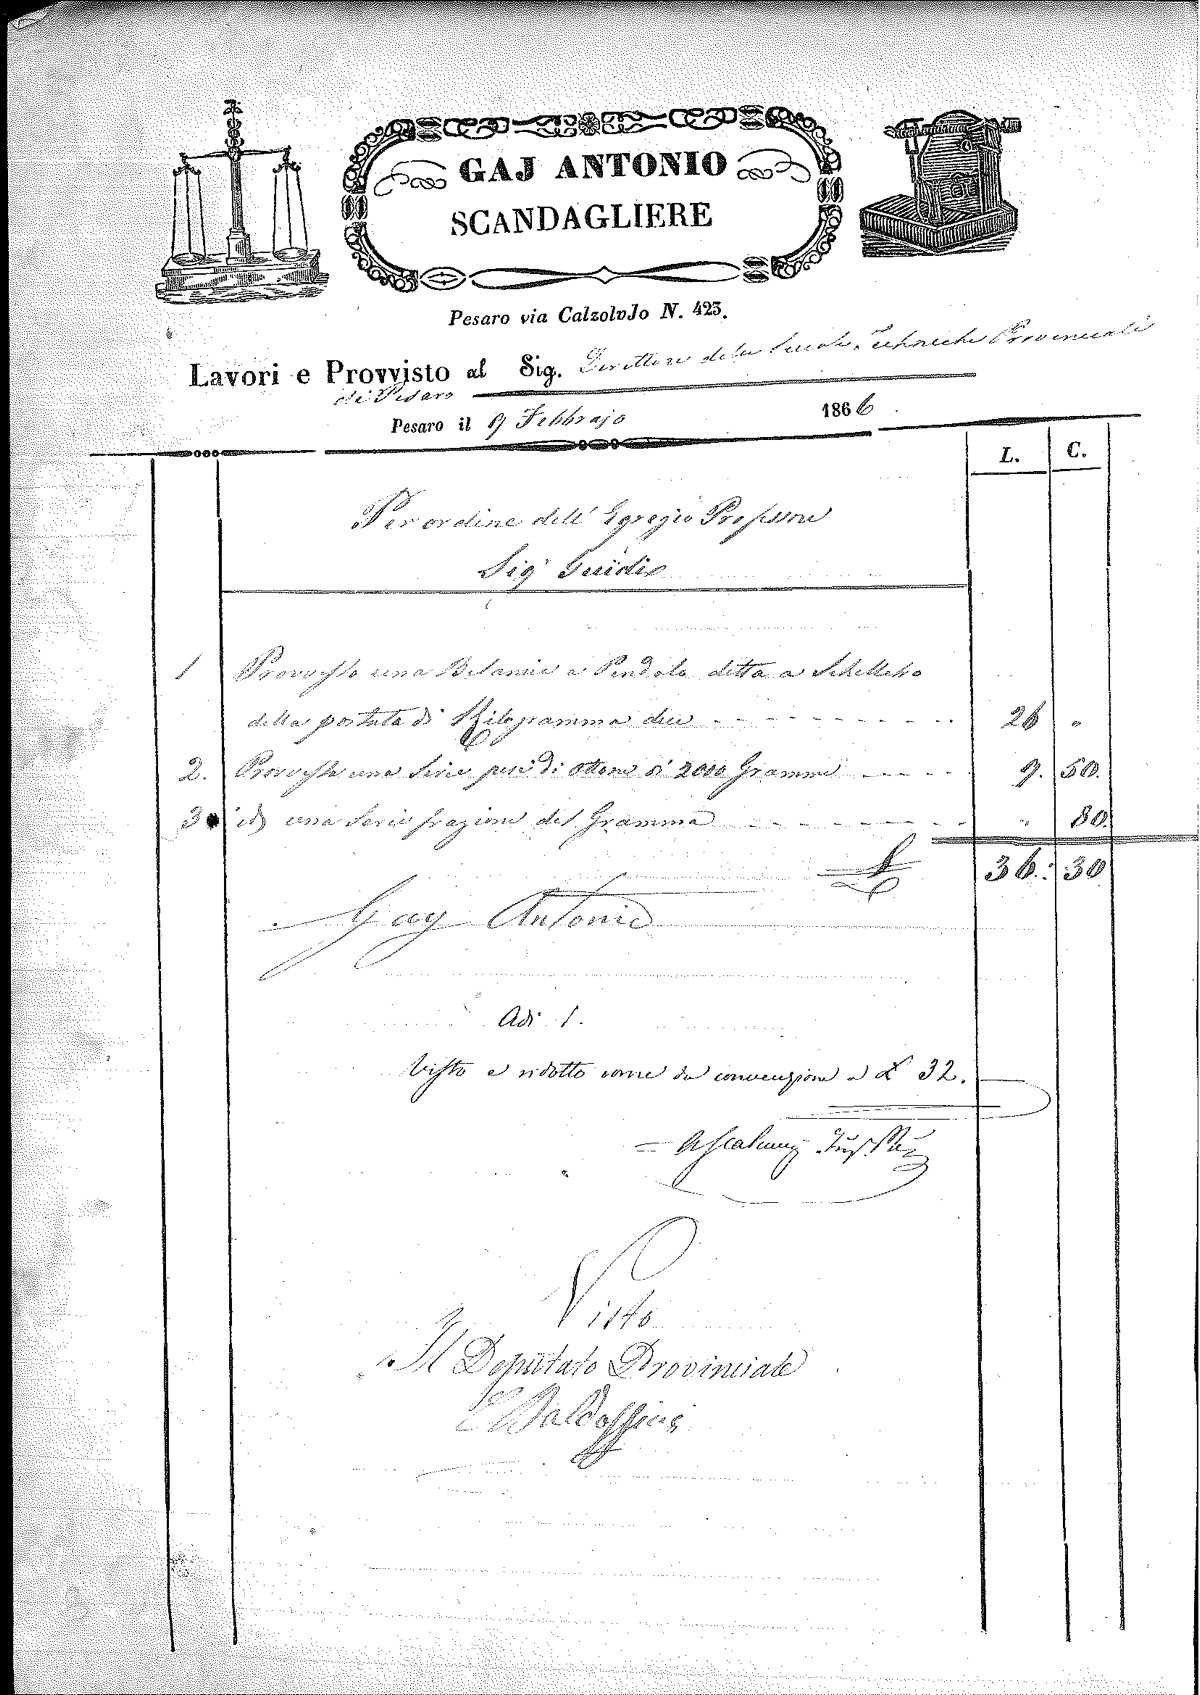 GAJ ANTONIO
SCANDAGLIERE
Pesaro via Calzolajo N. 423.
Lavori e Provvisto al Sig. Direttore delle Scuole Techniche Provinciali
di Pesaro
Pesaro il 9 Febbrajo 1866.
L. C.
Per ordine dell' Egregio Professore
Sigr Guidi
1 Provvisto una Belancie a Pendolo ditta a Schelletro
della portata di Kilogramma dieci 26 "
2. Provvisto una Serie pesi di ottone di 2000 Gramme 9. 50.
3 id una Serie frazione del Gramma " 80.
36: 30
Gay Antonio
Adi 1.
Visto e ridotto come da convenzione a £ 32.
Visto
Il Deputato Provinciale